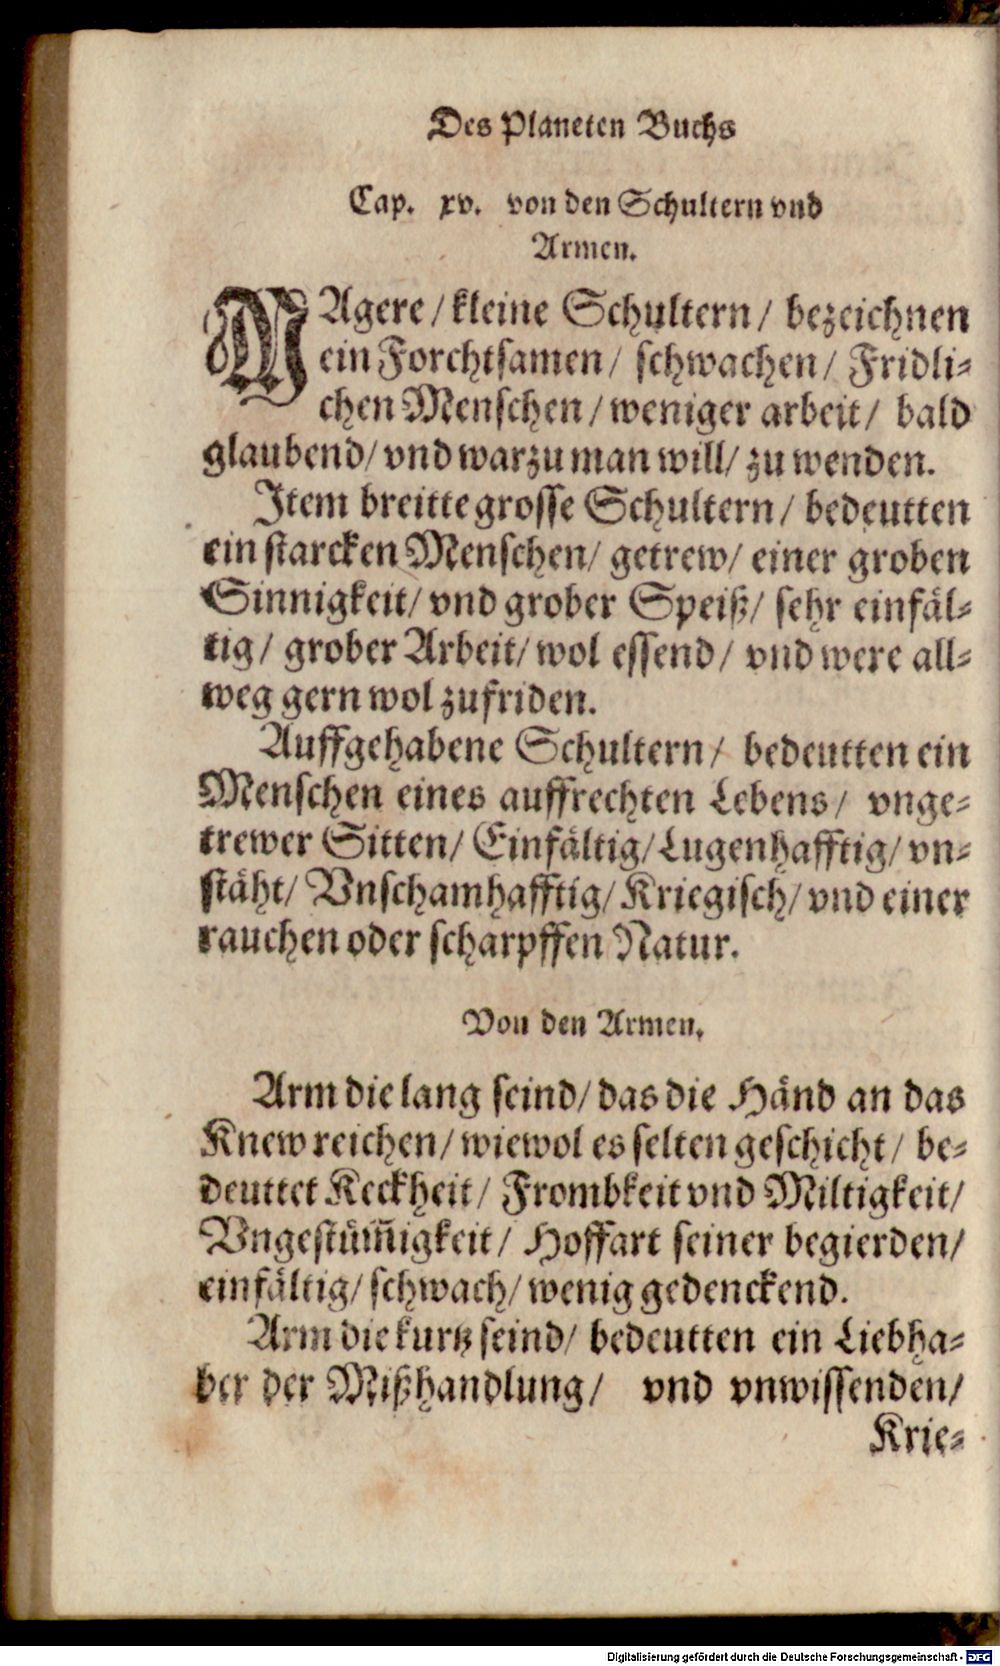 Des Planeten Buchs
Cap. xv. von den Schultern vnd
Armen.
MAgere/ kleine Schultern/ bezeichnen
ein Forchtsamen/ schwachen/ Fridli-
chen Menschen/ weniger arbeit/ bald
glaubend/ vnd warzu man will/ zu wenden.
Item breitte grosse Schultern/ bedeutten
ein starcken Menschen/ getrew/ einer groben
Sinnigkeit/ vnd grober Speiß/ sehr einfäl-
tig/ grober Arbeit/ wol essend/ vnd were all-
weg gern wol zufriden.
Auffgehabene Schultern/ bedeutten ein
Menschen eines auffrechten Lebens/ vnge-
trewer Sitten/ Einfältig/ Lugenhafftig/ vn-
stäht/ Vnschamhafftig/ Kriegisch/ vnd einer
rauchen oder scharpffen Natur.
Von den Armen.
Arm die lang seind/ das die Händ an das
Knew reichen/ wiewol es selten geschicht/ be-
deuttet Keckheit/ Frombkeit vnd Miltigkeit/
Vngestüm̃igkeit/ Hoffart seiner begierden/
einfältig/ schwach/ wenig gedenckend.
Arm die kurtz seind/ bedeutten ein Liebha-
ber der Mißhandlung/ vnd vnwissenden/
Krie-
Digitalisierung gefördert durch die Deutsche Forschungsgemeinschaft - DFG